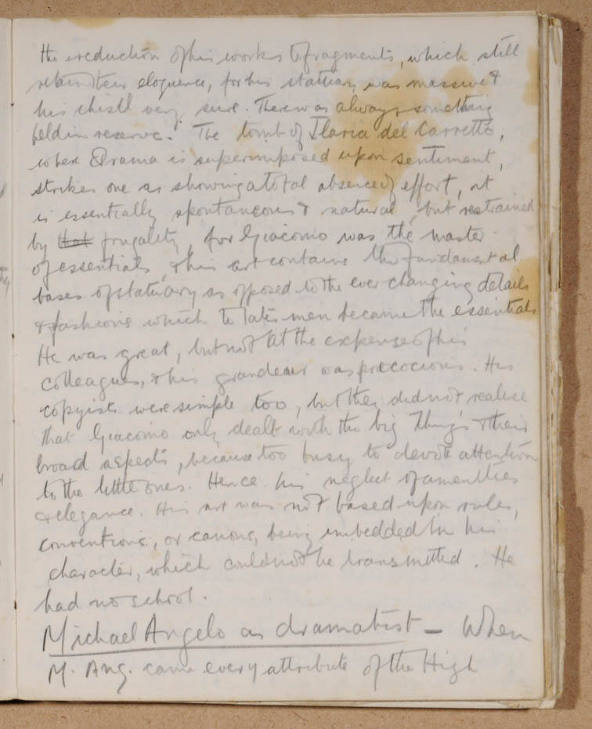 the reduction of his works to fragments, which still
retain their eloquence, for his statuary was massive &
his chisel very sure. There was always something
held in reserve. The tomb of Ilaria del Carretto,
where Drama is superimposed upon sentiment,
strikes one as showing a total absence of effort, it
is essentially spontaneous & natural, but restrained
by that frugality, for Giacomo was the master
of essentials, & his art contains the fundamental
bases of statuary as opposed to the ever changing details
& fashions which to later men became the essentials
He was great, but not at the expense of his
colleagues, & his grandeur was precocious. His
copyists were simple too, but they did not realise
that Giacomo only dealt with the big things & their
broad aspects, because too busy to devote attention
to the little ones. Hence his neglect of amenities
& elegance. His art was not based upon rules,
conventions, or canons, being imbedded in his
character, which could not be transmitted. He
had no school.
Michael Angelo as dramatist — When
M. Ang. came every attribute of the High